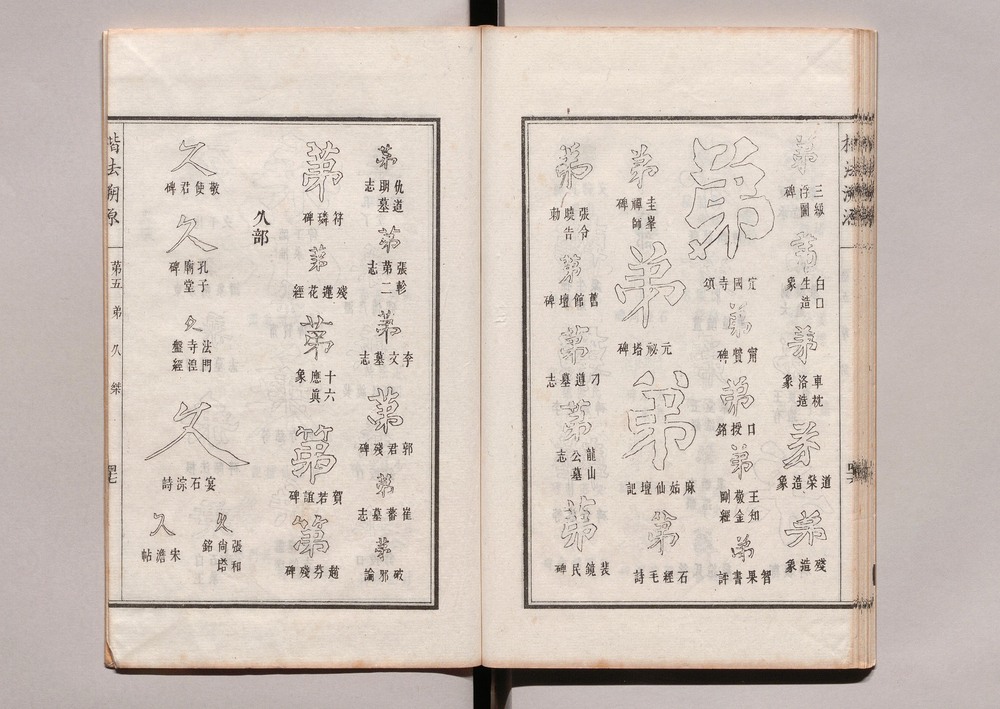 弟
三級浮圖碑
弟
白口生造象
弟
車枕洛造象
弟
道榮造象
弟
殘造象
弟
定國寺頌
弟
甯贙碑
弟
口授銘
弟
王知敬金剛經
弟
智果書評
弟
圭峯禪師碑
弟
元祕塔碑
弟
麻姑仙壇記
弟
石經毛詩
弟
張令曉告勅
弟
舊館壇碑
弟
刁遵墓志
弟
龍山公墓志
第
裴鏡民碑
第
仇道朗墓志
第
張軫第二志
第
李文墓志
第
郭君殘碑
第
崔蕃墓志
第
破邪論
第
符璘碑
第
殘蓮花經
第
十六應真象
第
賀若誼碑
第
趙芬殘碑
久部
久
敬使君碑
久
孔子廟堂碑
久
法門寺湼槃經
久
宴石淙詩
久
張尙和塔銘
久
宋儋帖
楷法溯原
第五 弟 久 桀